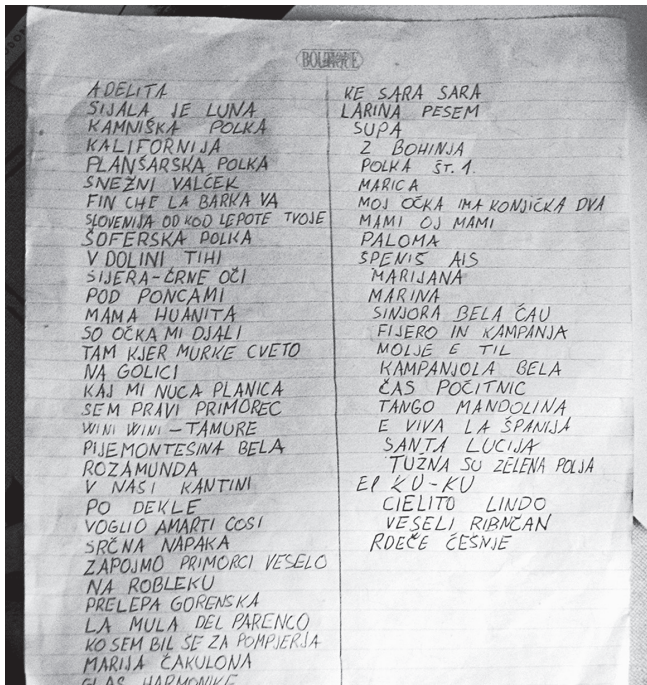 BOUTIQUE
ADELITA
SIJALA JE LUNA
KAMNIŠKA POLKA
KALIFORNIJA
PLANŠARSKA POLKA
SNEŽNI VALČEK
FIN CHE LA BARKA VA
SLOVENIJA OD KOD LEPOTE TVOJE
ŠOFERSKA POLKA
V DOLINI TIHI
SIJERA-ČRNE OČI
POD PONCAMI
MAMA HUANITA
SO OČKA MI DJALI
TAM KJER MURKE CVETO
NA GOLICI
KAJ MI NUCA PLANICA
SEM PRAVI PRIMOREC
WINI WINI - TAMURE
PIJEMONTESINA BELA
ROZAMUNDA
V NAŠI KANTINI
PO DEKLE
VOGLIO AMARTI COSI
SRČNA NAPAKA
ZAPOJMO PRIMORCI VESELO
NA ROBLEKU
PRELEPA GORENSKA
LA MULA DEL PARENCO
KO SEM BIL ŠE ZA POMPJERJA
MARIJA ČAKULONA
GLAS HARMONIKE
KE SARA SARA
LARINA PESEM
SUPA
Z BOHINJA
POLKA ŠT. 1.
MARICA
MOJ OČKA IMA KONJIČKA DVA
MAMI OJ MAMI
PALOMA
ŠPENIŠ AIS
MARIJANA
MARINA
SINJORA BELA ČAU
FIJERO IN KAMPANJA
MOLJE E TIL
KAMPANJOLA BELA
ČAS POČITNIC
TANGO MANDOLINA
E VIVA LA ŠPANIJA
SANTA LUCIJA
TUŽNA SU ZELENA POLJA
EJ KU-KU
CIELITO LINDO
VESELI RIBNČAN
RDEČE ČEŠNJE